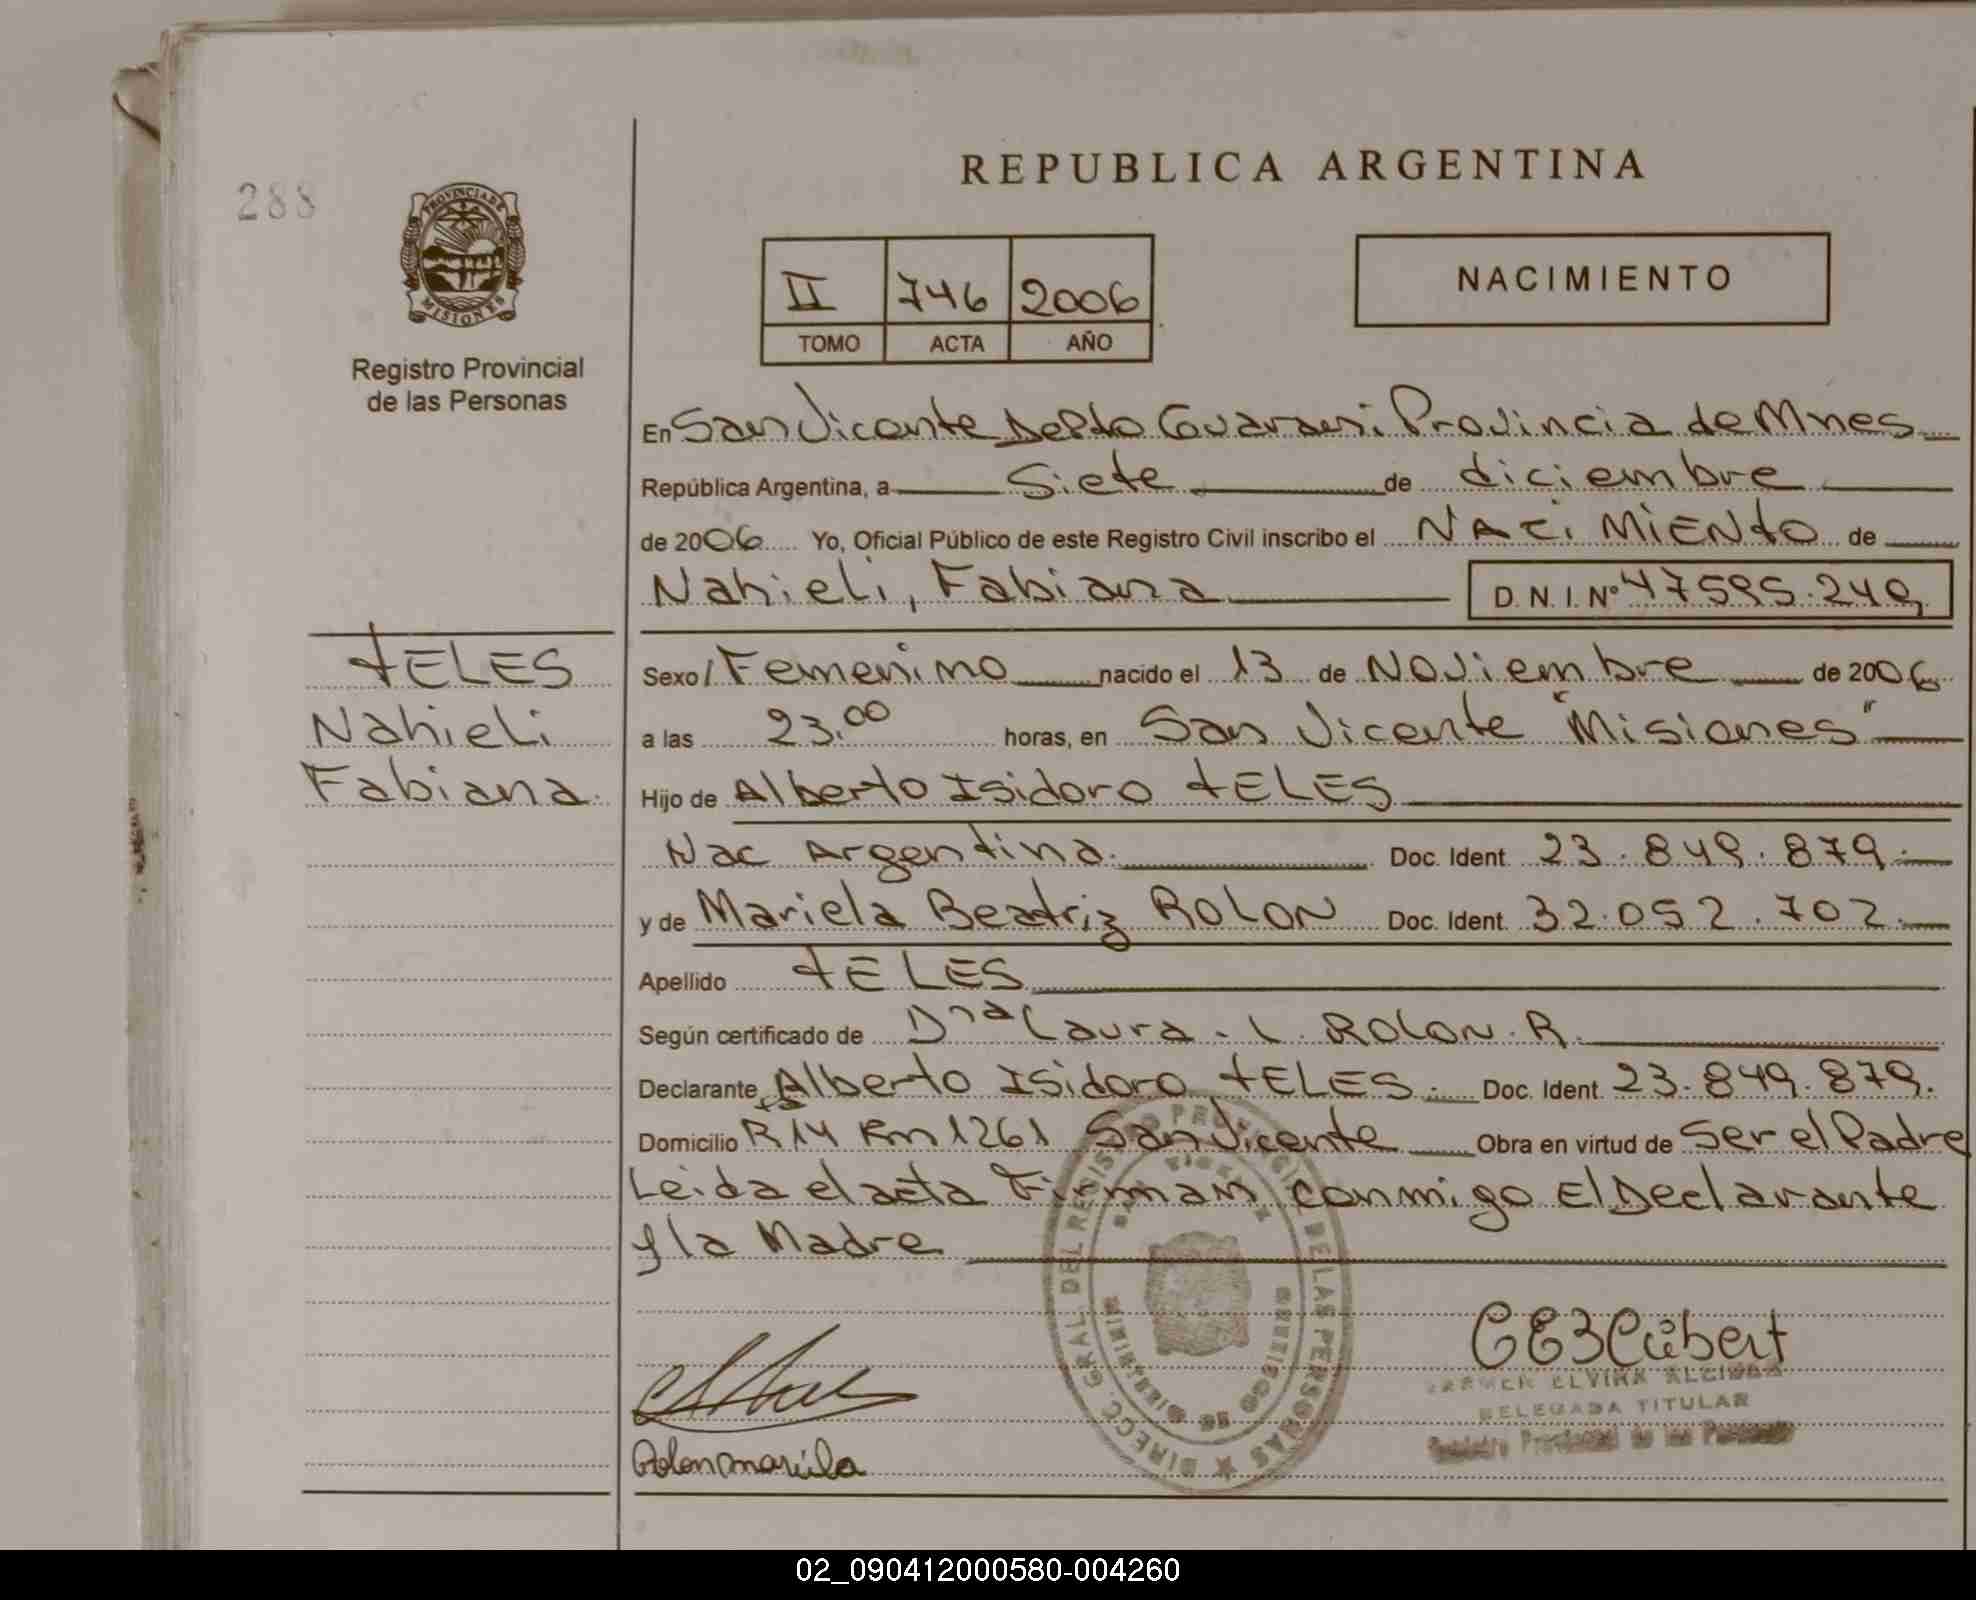 288
PROVINCIA DE
MISIONES
Registro Provincial
de las Personas
REPUBLICA ARGENTINA
II 746 2006
TOMO ACTA AÑO
NACIMIENTO
En San Vicente Depto Guarani Provincia de Mnes
República Argentina, a siete de diciembre
de 2006 Yo, Oficial Público de este Registro Civil inscribo el NACiMIENTO de
Nahieli, Fabiana D.N.I. Nº 47595.249
TELES
Nahieli
Fabiana
Sexo/ Femenino nacido el 13 de Noviembre de 2006
a las 23,00 horas, en San Vicente "Misiones"
Hijo de Alberto Isidoro TELES
Nac Argentina. Doc. Ident. 23.849.879.
y de Mariela Beatriz ROLON Doc. Ident. 32.052.702.
Apellido TELES
Según certificado de Dra Laura. L. ROLON. R.
Declarante Alberto Isidoro TELES. Doc. Ident. 23.849.879.
Domicilio R14 Km 1261 San Vicente Obra en virtud de Ser el Padre
Leida el acta Firman conmigo El Declarante
y la Madre
DIRECC. GRAL. DEL REGISTRO PROVINCIAL DE LAS PERSONAS
SAN VICENTE
MINISTERIO DE GOBIERNO
Rolon mariela
ELVIRA
DELEGADA TITULAR
Registro Provincial de las Personas
02_090412000580-004260